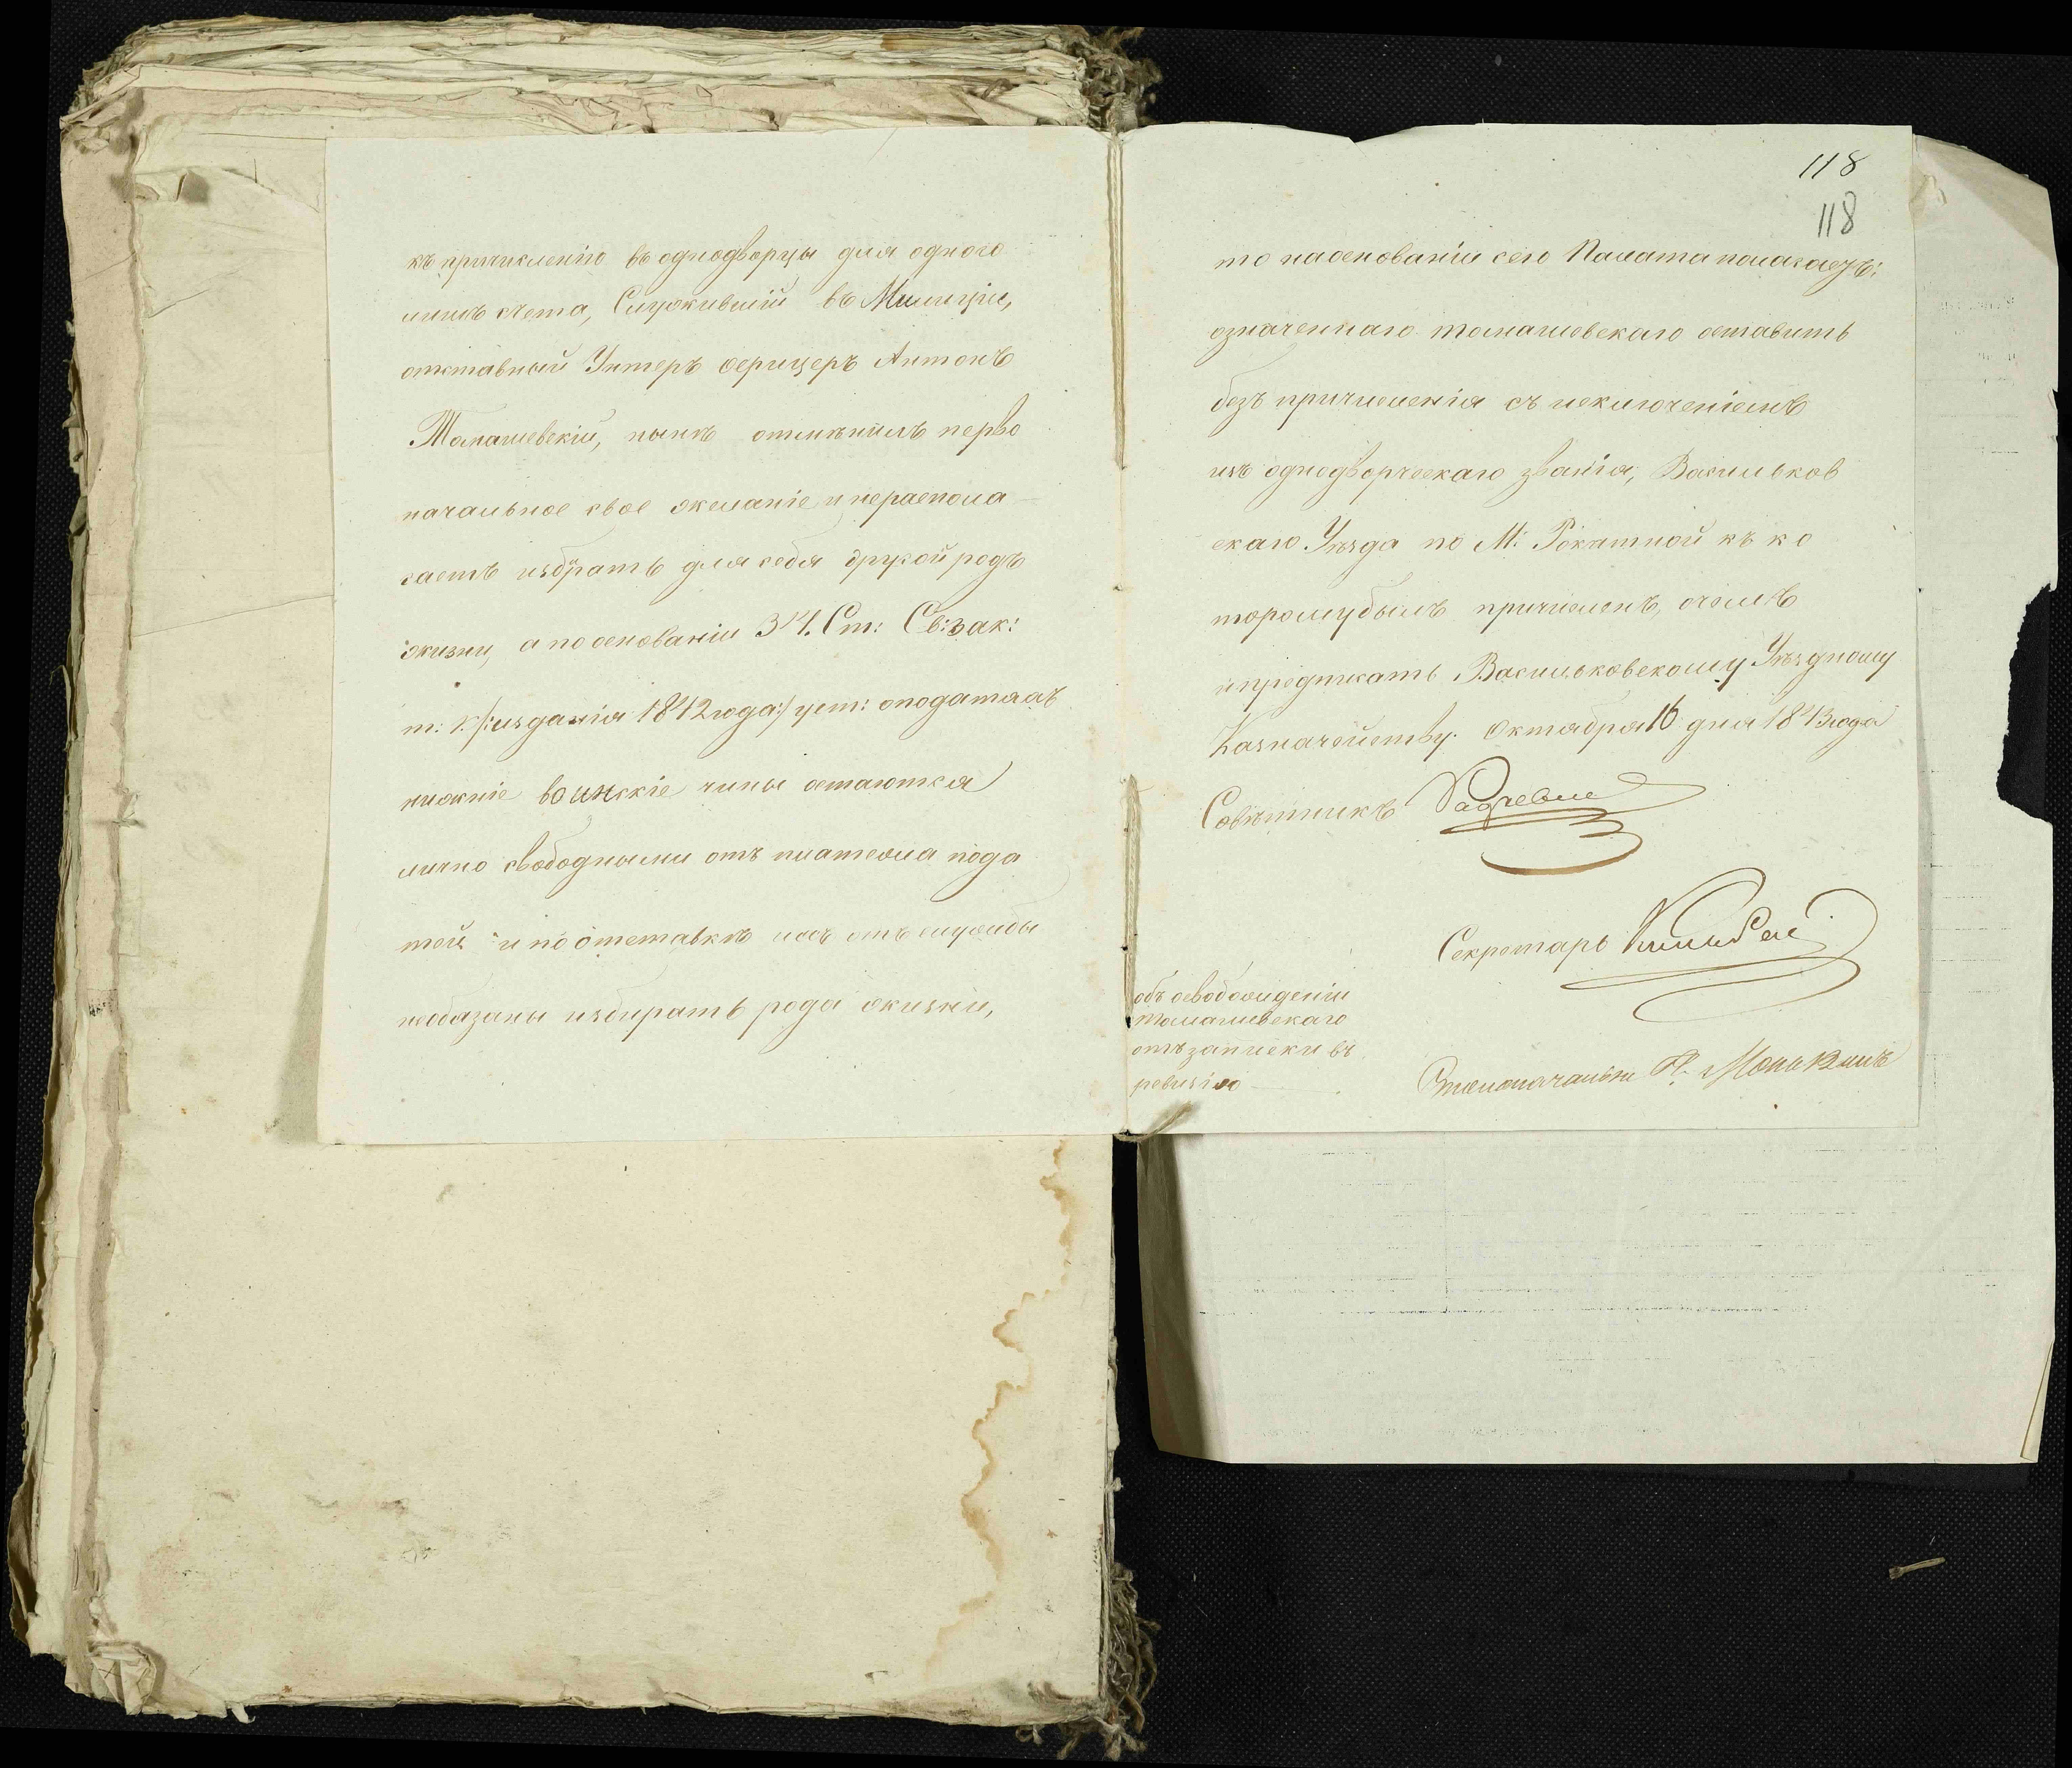 къ причисленію въ однодворцы для одного
лишь счета, Служившій въ Милиціи,
отставный Унтеръ Офрицеръ Антонъ
Томашевскій, нынѣ отмѣнилъ перво
начальное свое желаніе и нераспола
гаетъ избрать для себя другой родъ
жизни, а по основаніи 314. Ст: Св: зак:
т: V. /: изданія 1842 года :/ уст: о податяхъ
нижніе воинскіе чины остаются
лично свободными отъ платежа пода
тей и по отставкѣ ихъ отъ службы
необязаны избирать рода жизни,
118
118
то на основаніи сего Палата полагаетъ:
означеннаго Томашевскаго оставить
безъ причисленія съ исключеніемъ
изъ однодворческаго званія, Васильков
скаго Уѣзда по М: Рокитной къ ко
торому былъ причисленъ, о чемъ
и предписать Васильковскому Уѣздному
Казначейству. Октября 16 дня 1843 года
Совѣтникъ
Секретарь
объ освобожденіи
Томашевскаго
отъ записки въ
ревизію
Столоначальн